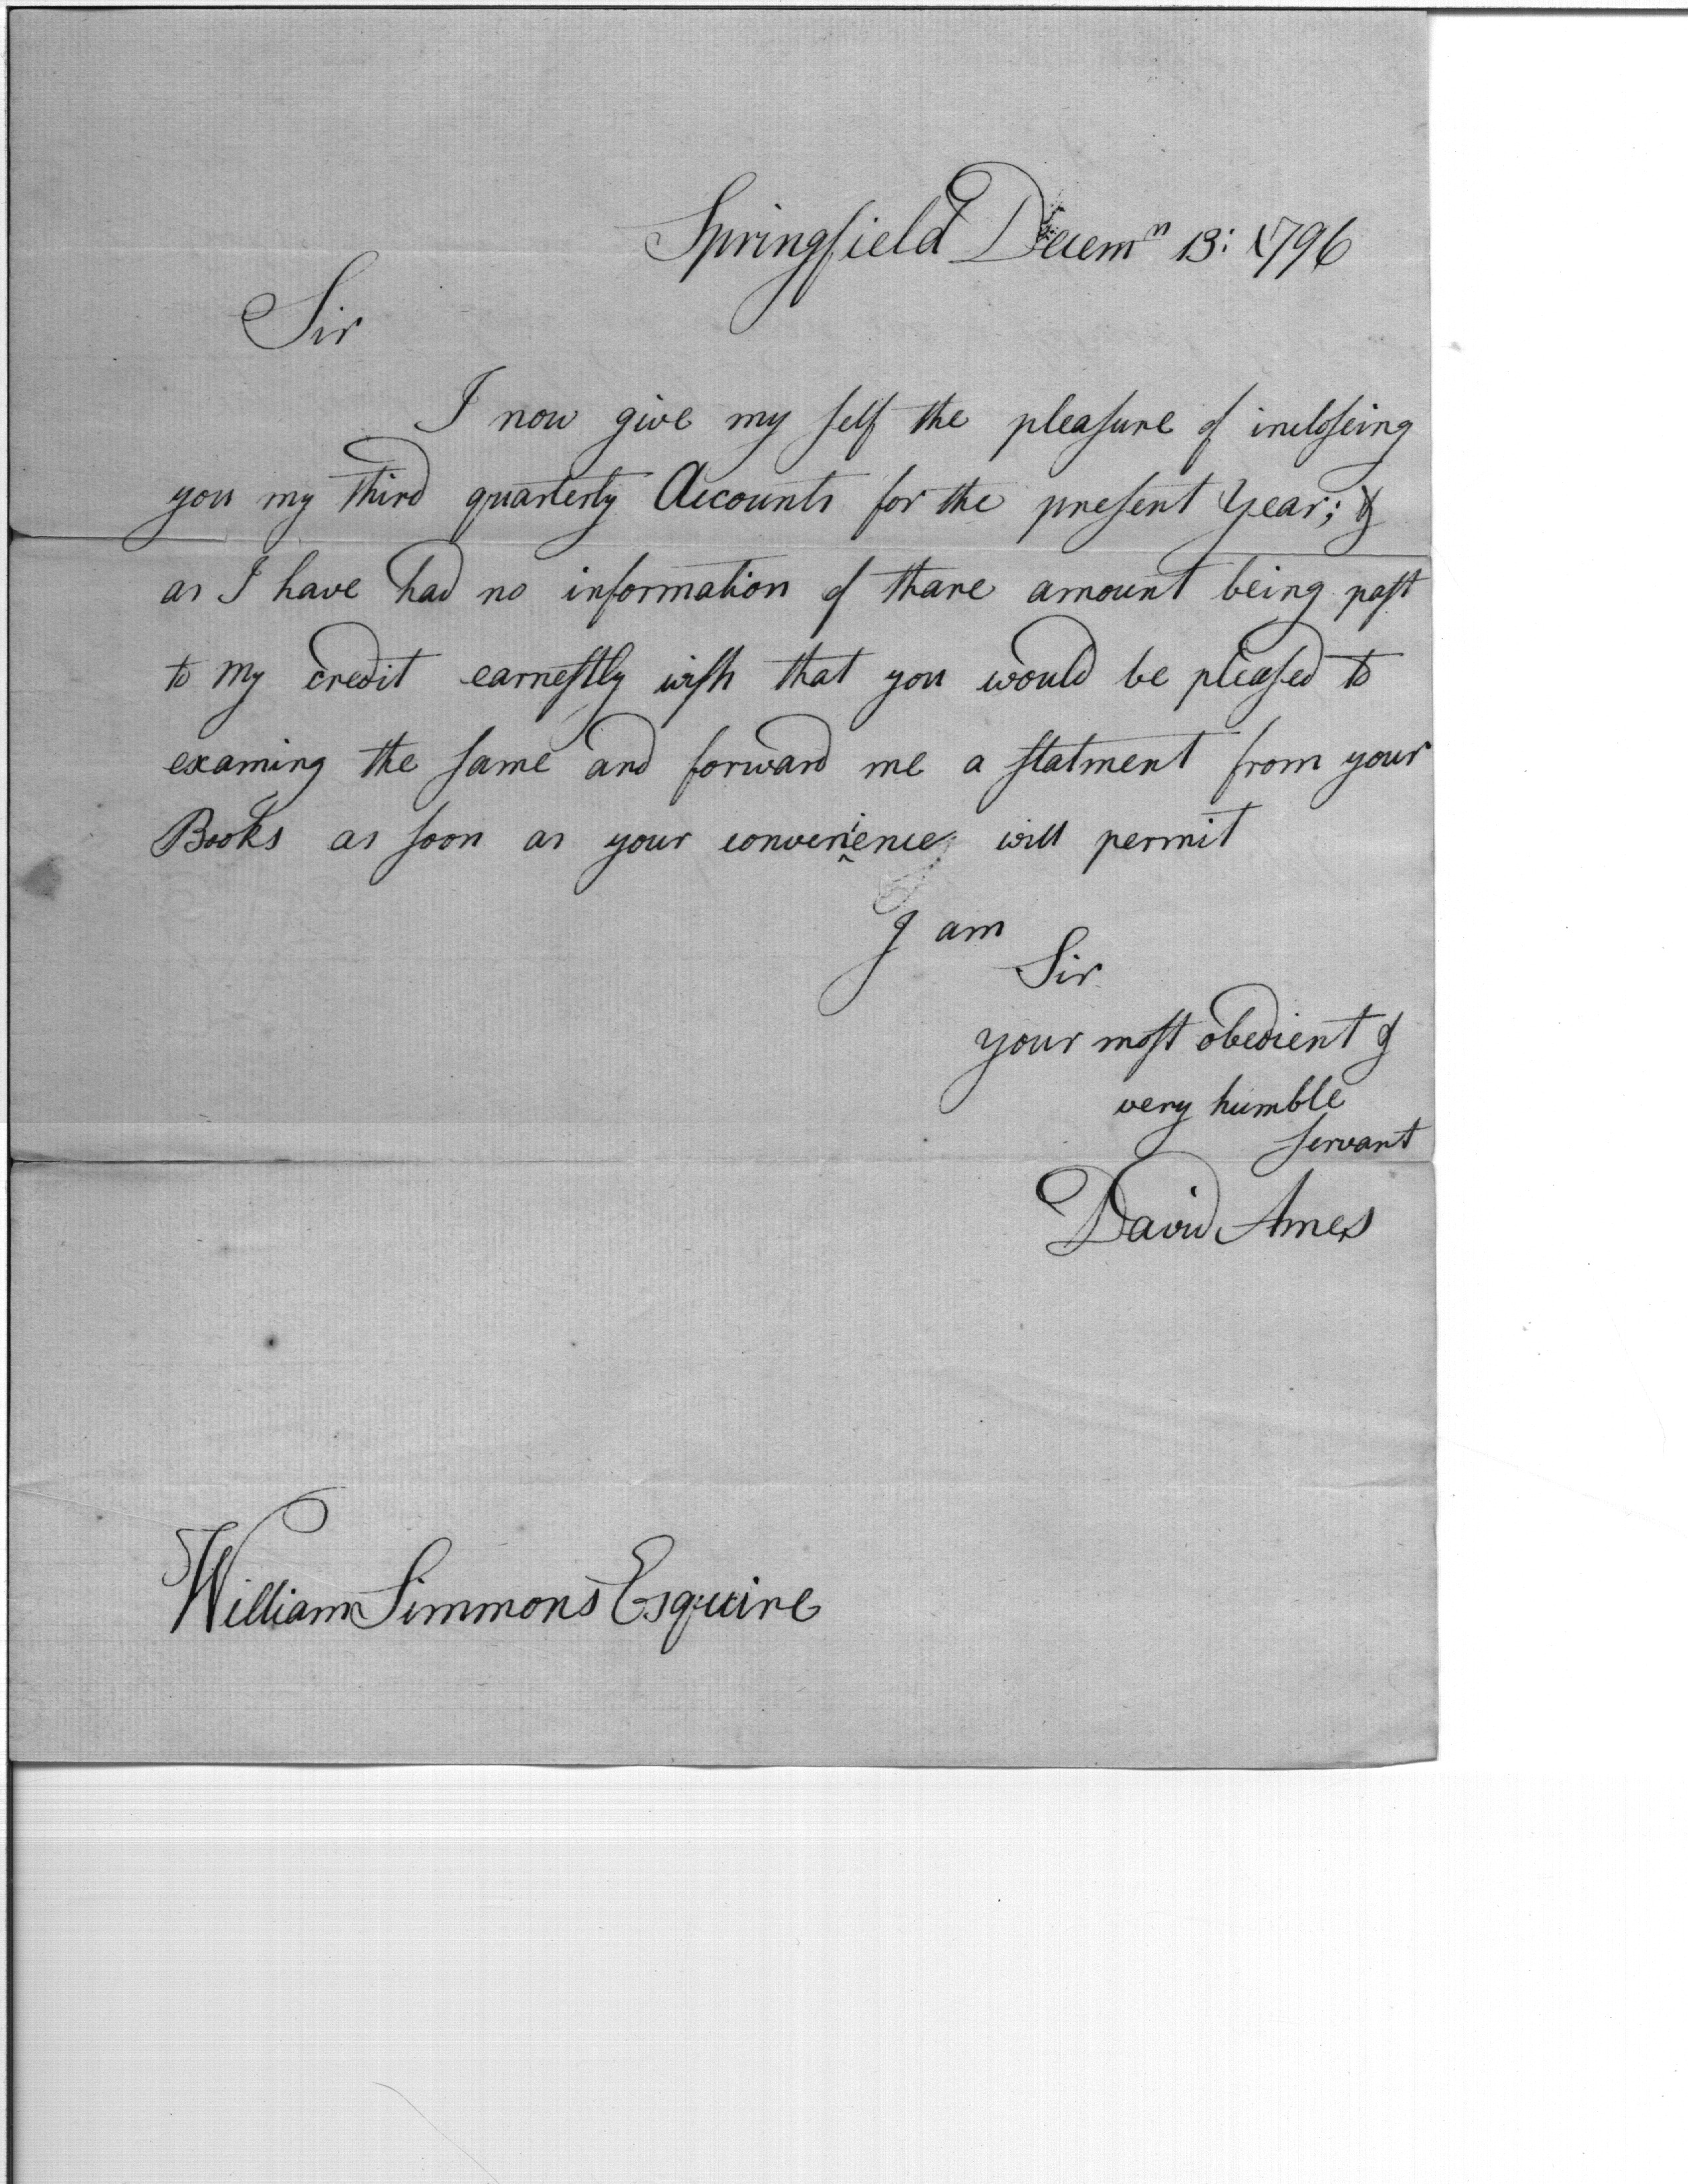 Springfield Decemʳ 13: 1796
Sir
I now give my self the pleasure of incloseing
you my third quarterly Accounts for the present Year; &
as I have had no information of thare amount being past
to my credit earnestly wish that you would be pleased to
examing the same and forward me a statment from your
Books as soon as your convenience will permit
I am
Sir
your most obedient &
very humble
servant
David Ames
William Simmons Esquire